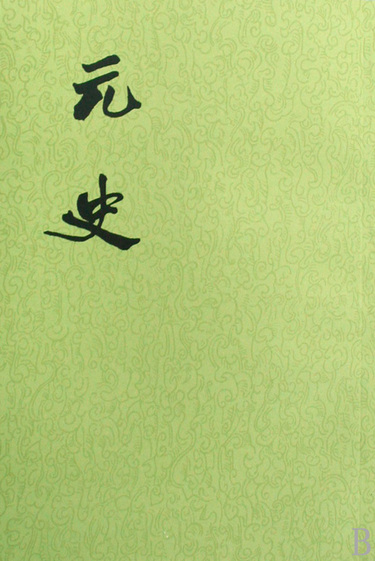 元史
B